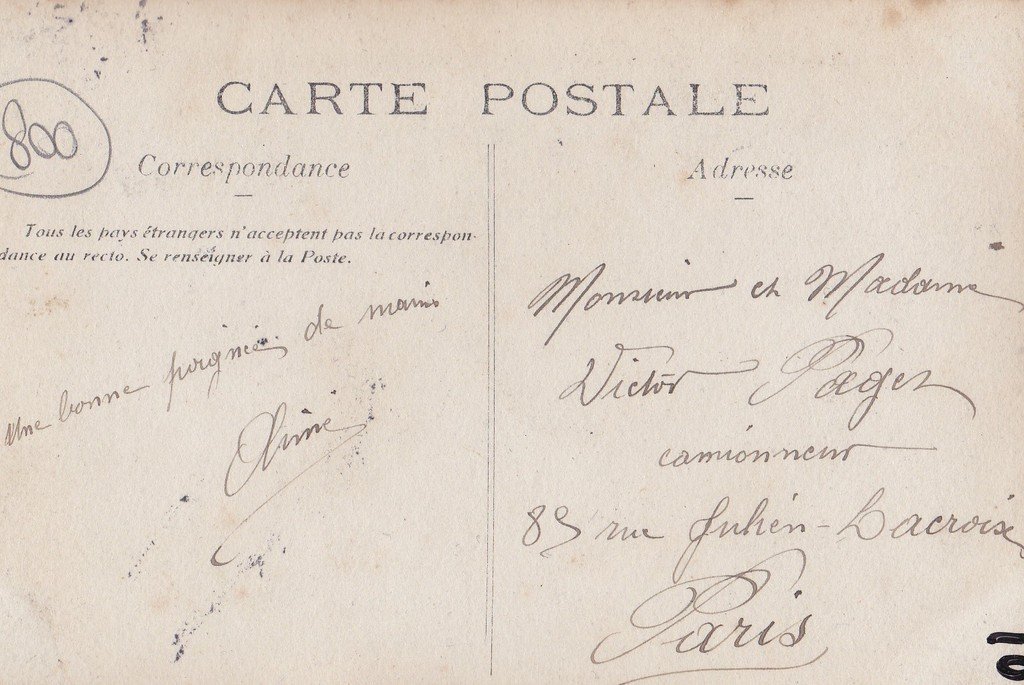 CARTE POSTALE
800
Correspondance
Tous les pays étrangers n'acceptent pas la correspon-
dance au recto. Se renseigner à la Poste.
Une bonne poignée de mains
Aimé
Adresse
Monsieur et Madame
Victor Paget
camionneur
85 rue Julien-Lacroix
Paris